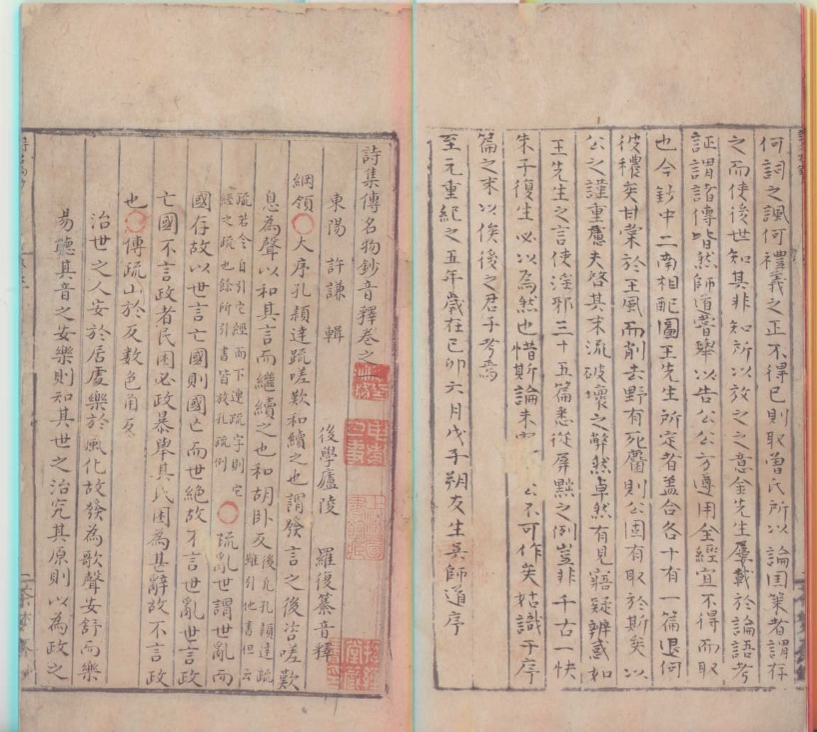 何詞之諷何禮義之正不得已則取曾氏所以論国策者謂存
之而使後世知其非知所以放之之意金先生屢載於論語考
証謂諸傳皆然師道嘗舉以告公公方遵用全經宜不得而取
也今鈔中二南相配圖王先生所定者盖合各十有一篇退何
彼穠矣甘棠於王風而削去野有死麕則公固有取於斯矣以
公之謹重慮夫啓其末流破壞之弊然卓然有見寤疑辨惑如
王先生之言使淫邪三十五篇悉從屏黜之例豈非千古一快
朱子復生必以為然也惜斯論未 公不可作矣姑識于序
篇之末以俟後之君子考焉
至元重紀之五年歲在己卯六月戊子朔友生吳師道序
詩集傳名物鈔音釋卷之
東陽 許謙 輯 後學廬陵 羅復纂音釋
綱領 大序孔穎達疏嗟歎和續之也謂發言之後咨嗟歎
息為聲以和其言而繼續之也和胡卧反後凡孔穎達疏
雖引他書但云
疏若全自引它經而下連疏字則它
經之疏也餘所引書皆放孔疏例 疏亂世謂世亂而
國存故以世言亡國則國亡而世絶故不言世亂世言政
亡國不言政者民困必政暴舉其民困為其辭故不言政
也 傳疏山於反數色角反
治世之人安於居處樂於風化故發為歌聲安舒而樂
易聽其音之安樂則知其世之治究其原則以為政之